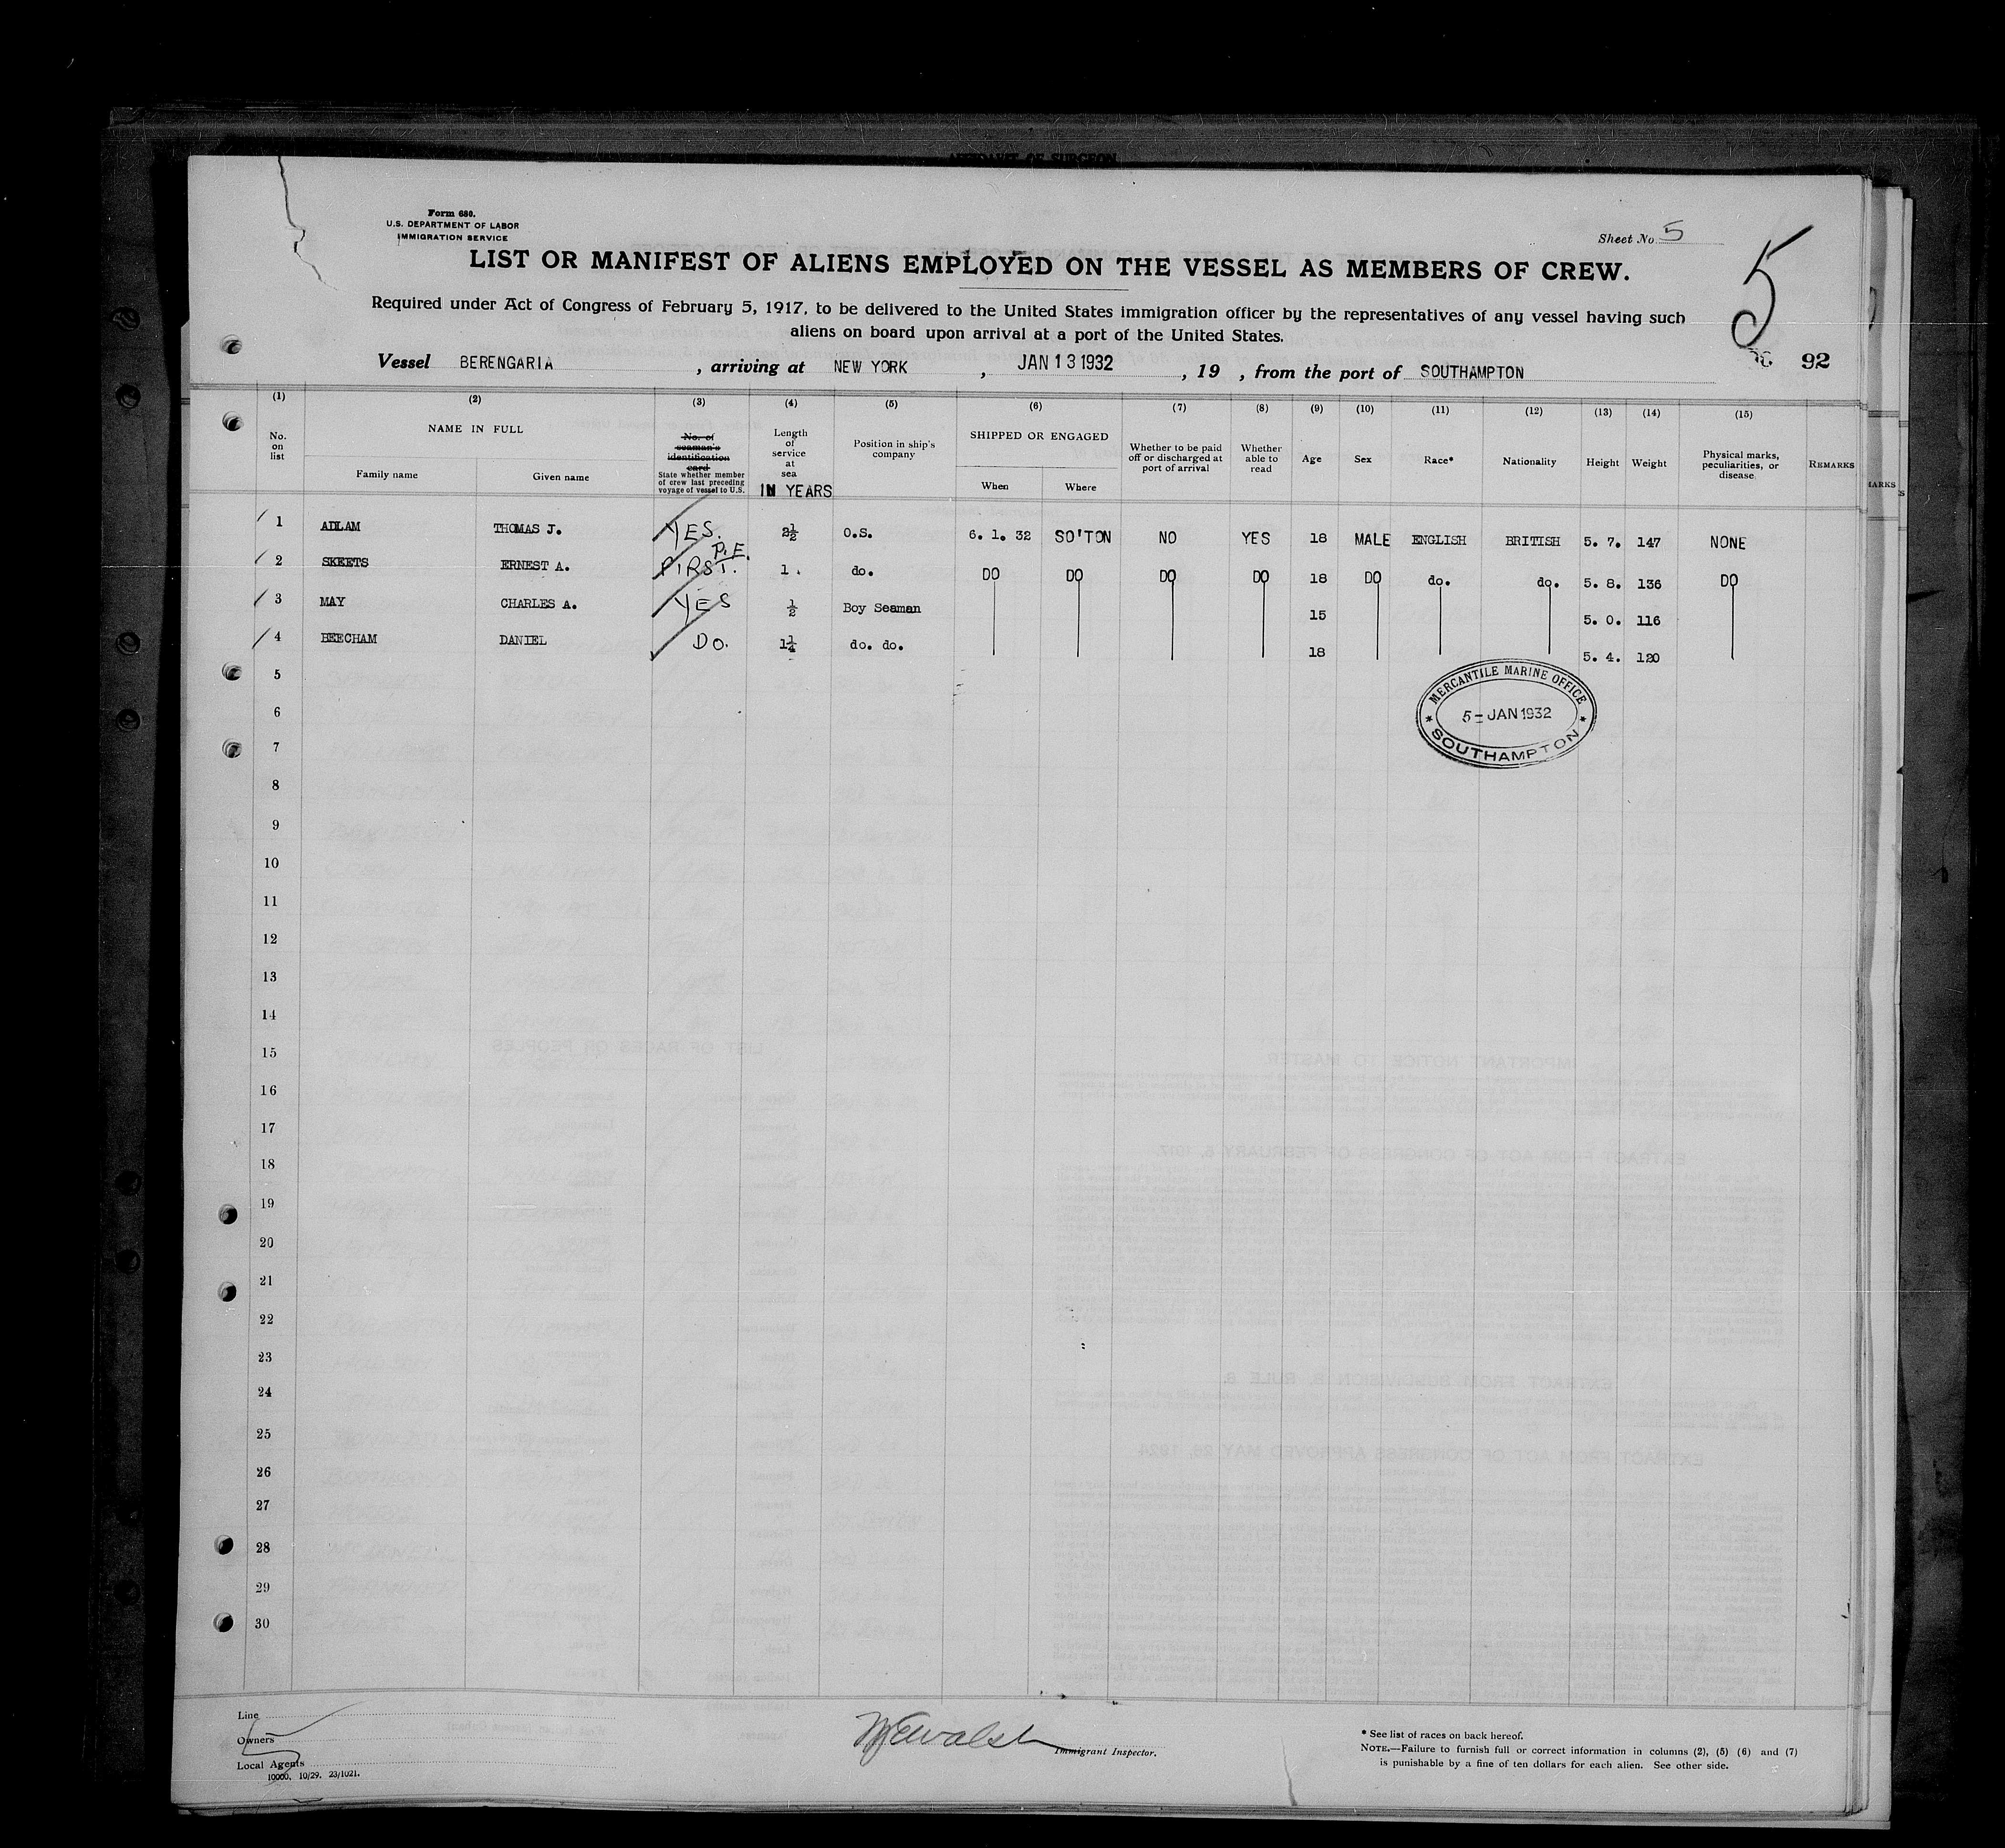 AFFIDAVIT OF SURGEON
Form 680.
U.S. DEPARTMENT OF LABOR
IMMIGRATION SERVICE
Sheet No. 5
5
LIST OR MANIFEST OF ALIENS EMPLOYED ON THE VESSEL AS MEMBERS OF CREW.
Required under Act of Congress of February 5, 1917, to be delivered to the United States immigration officer by the representatives of any vessel having such
aliens on board upon arrival at a port of the United States.
92
Vessel BERENGARIA, arriving at NEW YORK, JAN 13 1932, 19 , from the port of SOUTHAMPTON
(1) (2) (3) (4) (5) (6) (7) (8) (9) (10) (11) (12) (13) (14) (15)
No. on list
NAME IN FULL
Family name
Given name
No. of seaman's identification card
State whether member of crew last preceding voyage of vessel to U.S.
Length of service at sea
IN YEARS
Position in ship's company
SHIPPED OR ENGAGED
When
Where
Whether to be paid off or discharged at port of arrival
Whether able to read
Age
Sex
Race*
Nationality
Height
Weight
Physical marks, peculiarities, or disease
REMARKS
ARKS
S
1 ADLAM THOMAS J. YES. 2½ O.S. 6. 1. 32 SO'TON NO YES 18 MALE ENGLISH BRITISH 5. 7. 147 NONE
2 SKEETS ERNEST A. FIRST. P.E. 1. do. DO DO DO DO 18 DO do. do. 5. 8. 136 DO
3 MAY CHARLES A. YES ½ Boy Seaman 15 5. 0. 116
4 BEECHAM DANIEL DO. 1¼ do. do. 18 5. 4. 120
MERCANTILE MARINE OFFICE
5 - JAN 1932
SOUTHAMPTON
5
6
7
8
9
10
11
12
13
14
15
16
17
18
19
20
21
22
23
24
25
26
27
28
29
30
Line
Owners
Local Agents
10000. 10/29. 23/1021.
Immigrant Inspector.
* See list of races on back hereof.
NOTE.—Failure to furnish full or correct information in columns (2), (5) (6) and (7)
is punishable by a fine of ten dollars for each alien. See other side.